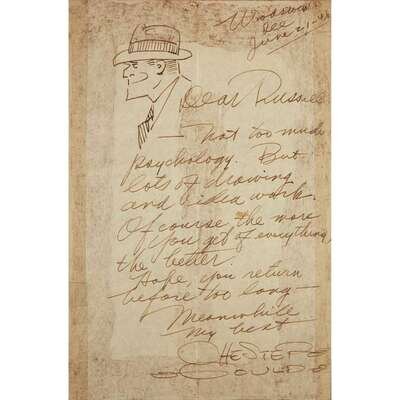 Woodstock
Ill
June 21-
Dear Russell
— Not too much
psychology. But
lots of drawing
and idea work.
Of course, the more
you get of everything
the better.
Hope, you return
before too long —
Meanwhile
My best
CHESTER
GOULD